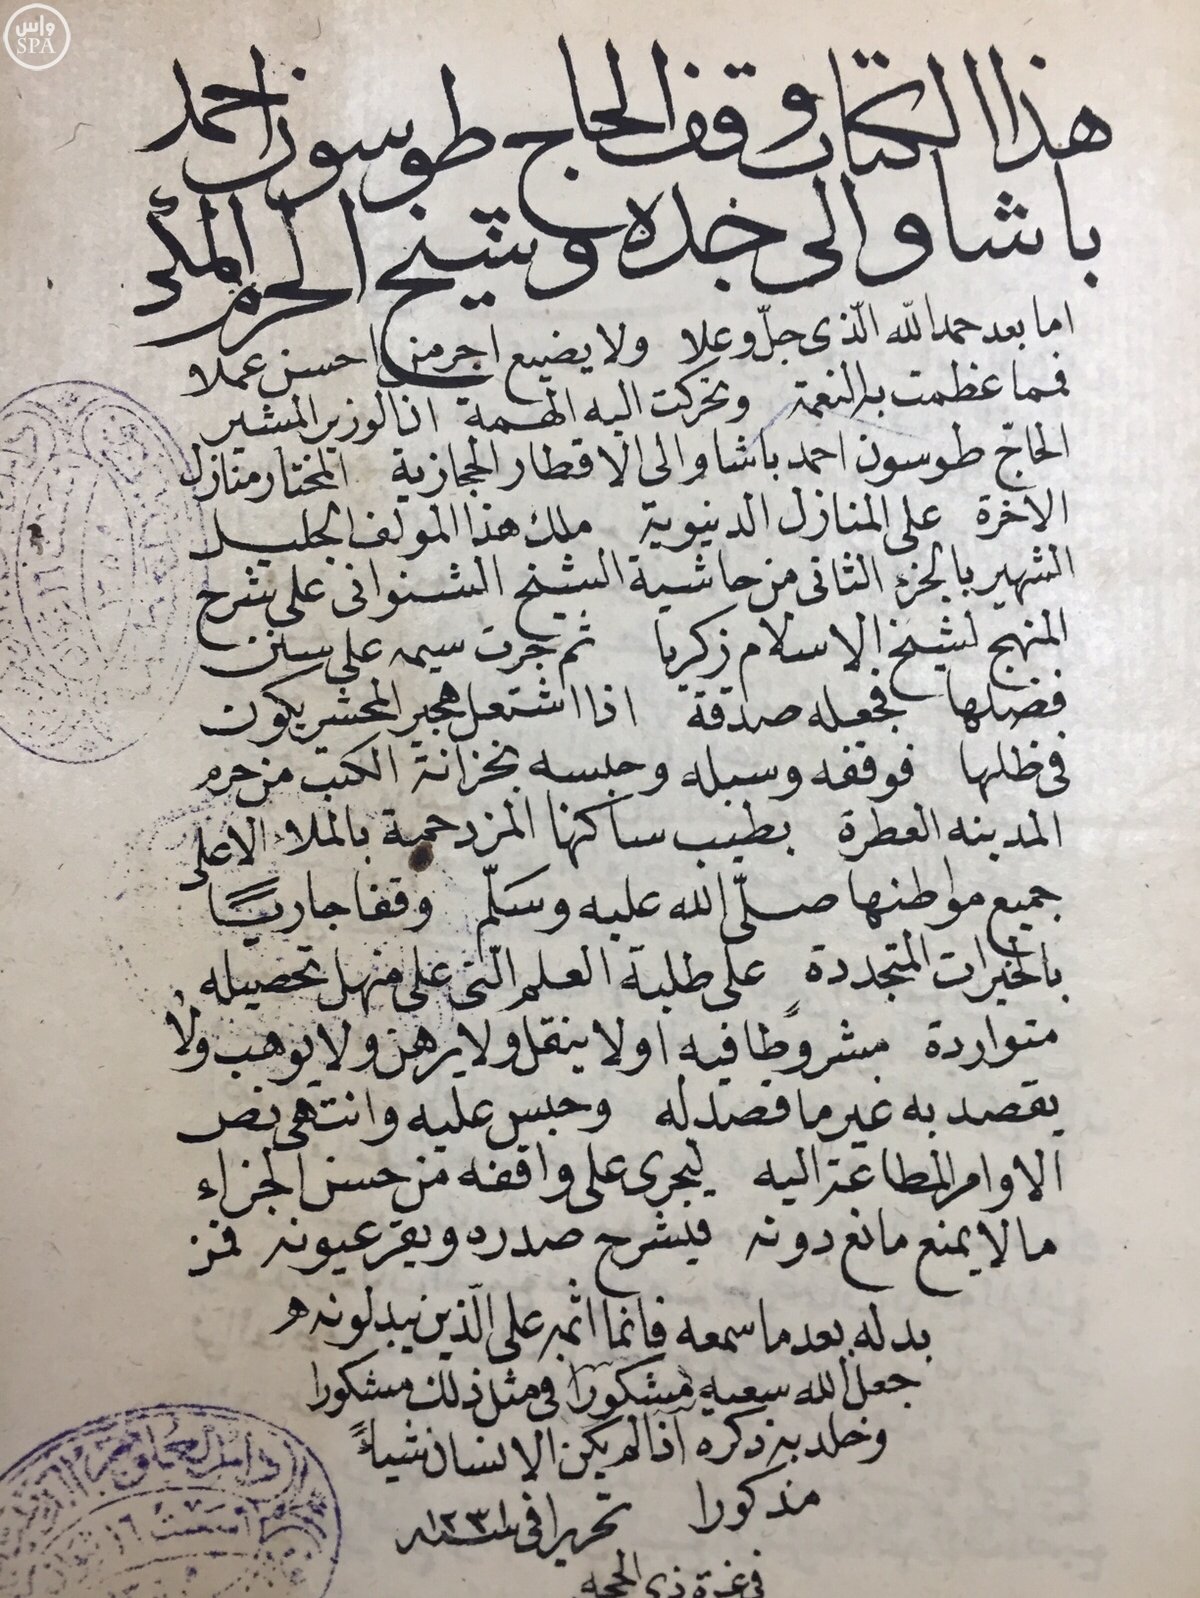 واس
SPA
هذا الكتاب وقف الحاج طوسون احمد
باشا والى جده وشيخ الحرم المكى
اما بعد حمد الله الّذى جلّ وعلا ولا يضيع اجر من احسن عملا
فمما عظمت به النعمة وتحركت اليه الهمة ان الوزير المشير
الحاج طوسون احمد باشا والى الاقطار الحجازية المختار منازل
الاخرة على المنازل الدنيوية ملك هذا المولف الجليل
الشهير بالجزء الثانى من حاشية الشيخ الشنوانى على شرح
المنهج لشيخ الاسلام زكريا ثم جرت سيمه على سنن
فضلها فجعله صدقة اذا اشتعل هجير المحشر يكون
فى ظلها فوقفه وسبله وحبسه بخزانة الكتب من حرم
المدينه العطرة بطيب ساكنها المزدحمة بالملا الاعلى
جميع مواطنها صلّى الله عليه وسلّم وقفا جاريًا
بالخيرات المتجددة على طلبة العلم التى على منهل تحصيله
متواردة مشروطا فيه اولا ينقل ولا يرهن ولا يوهب ولا
يقصد به غير ما قصد له وحبس عليه وانتهى نص
الاوامر المطاعة اليه ليجرى على واقفه من حسن الجزاء
ما لا يمنع مانع دونه فيشرح صدره ويقر عيونه فمن
بدله بعد ما سمعه فانما اثمه على الّذين يبدلونه
جعل الله سعيه مشكورا فى مثل ذلك مشكورا
وخلد به ذكره اذا لم يكن الانسان شياءً
مذكورا تحريرا فى سنة ١٢٣١
فى غرة ذى الحجه